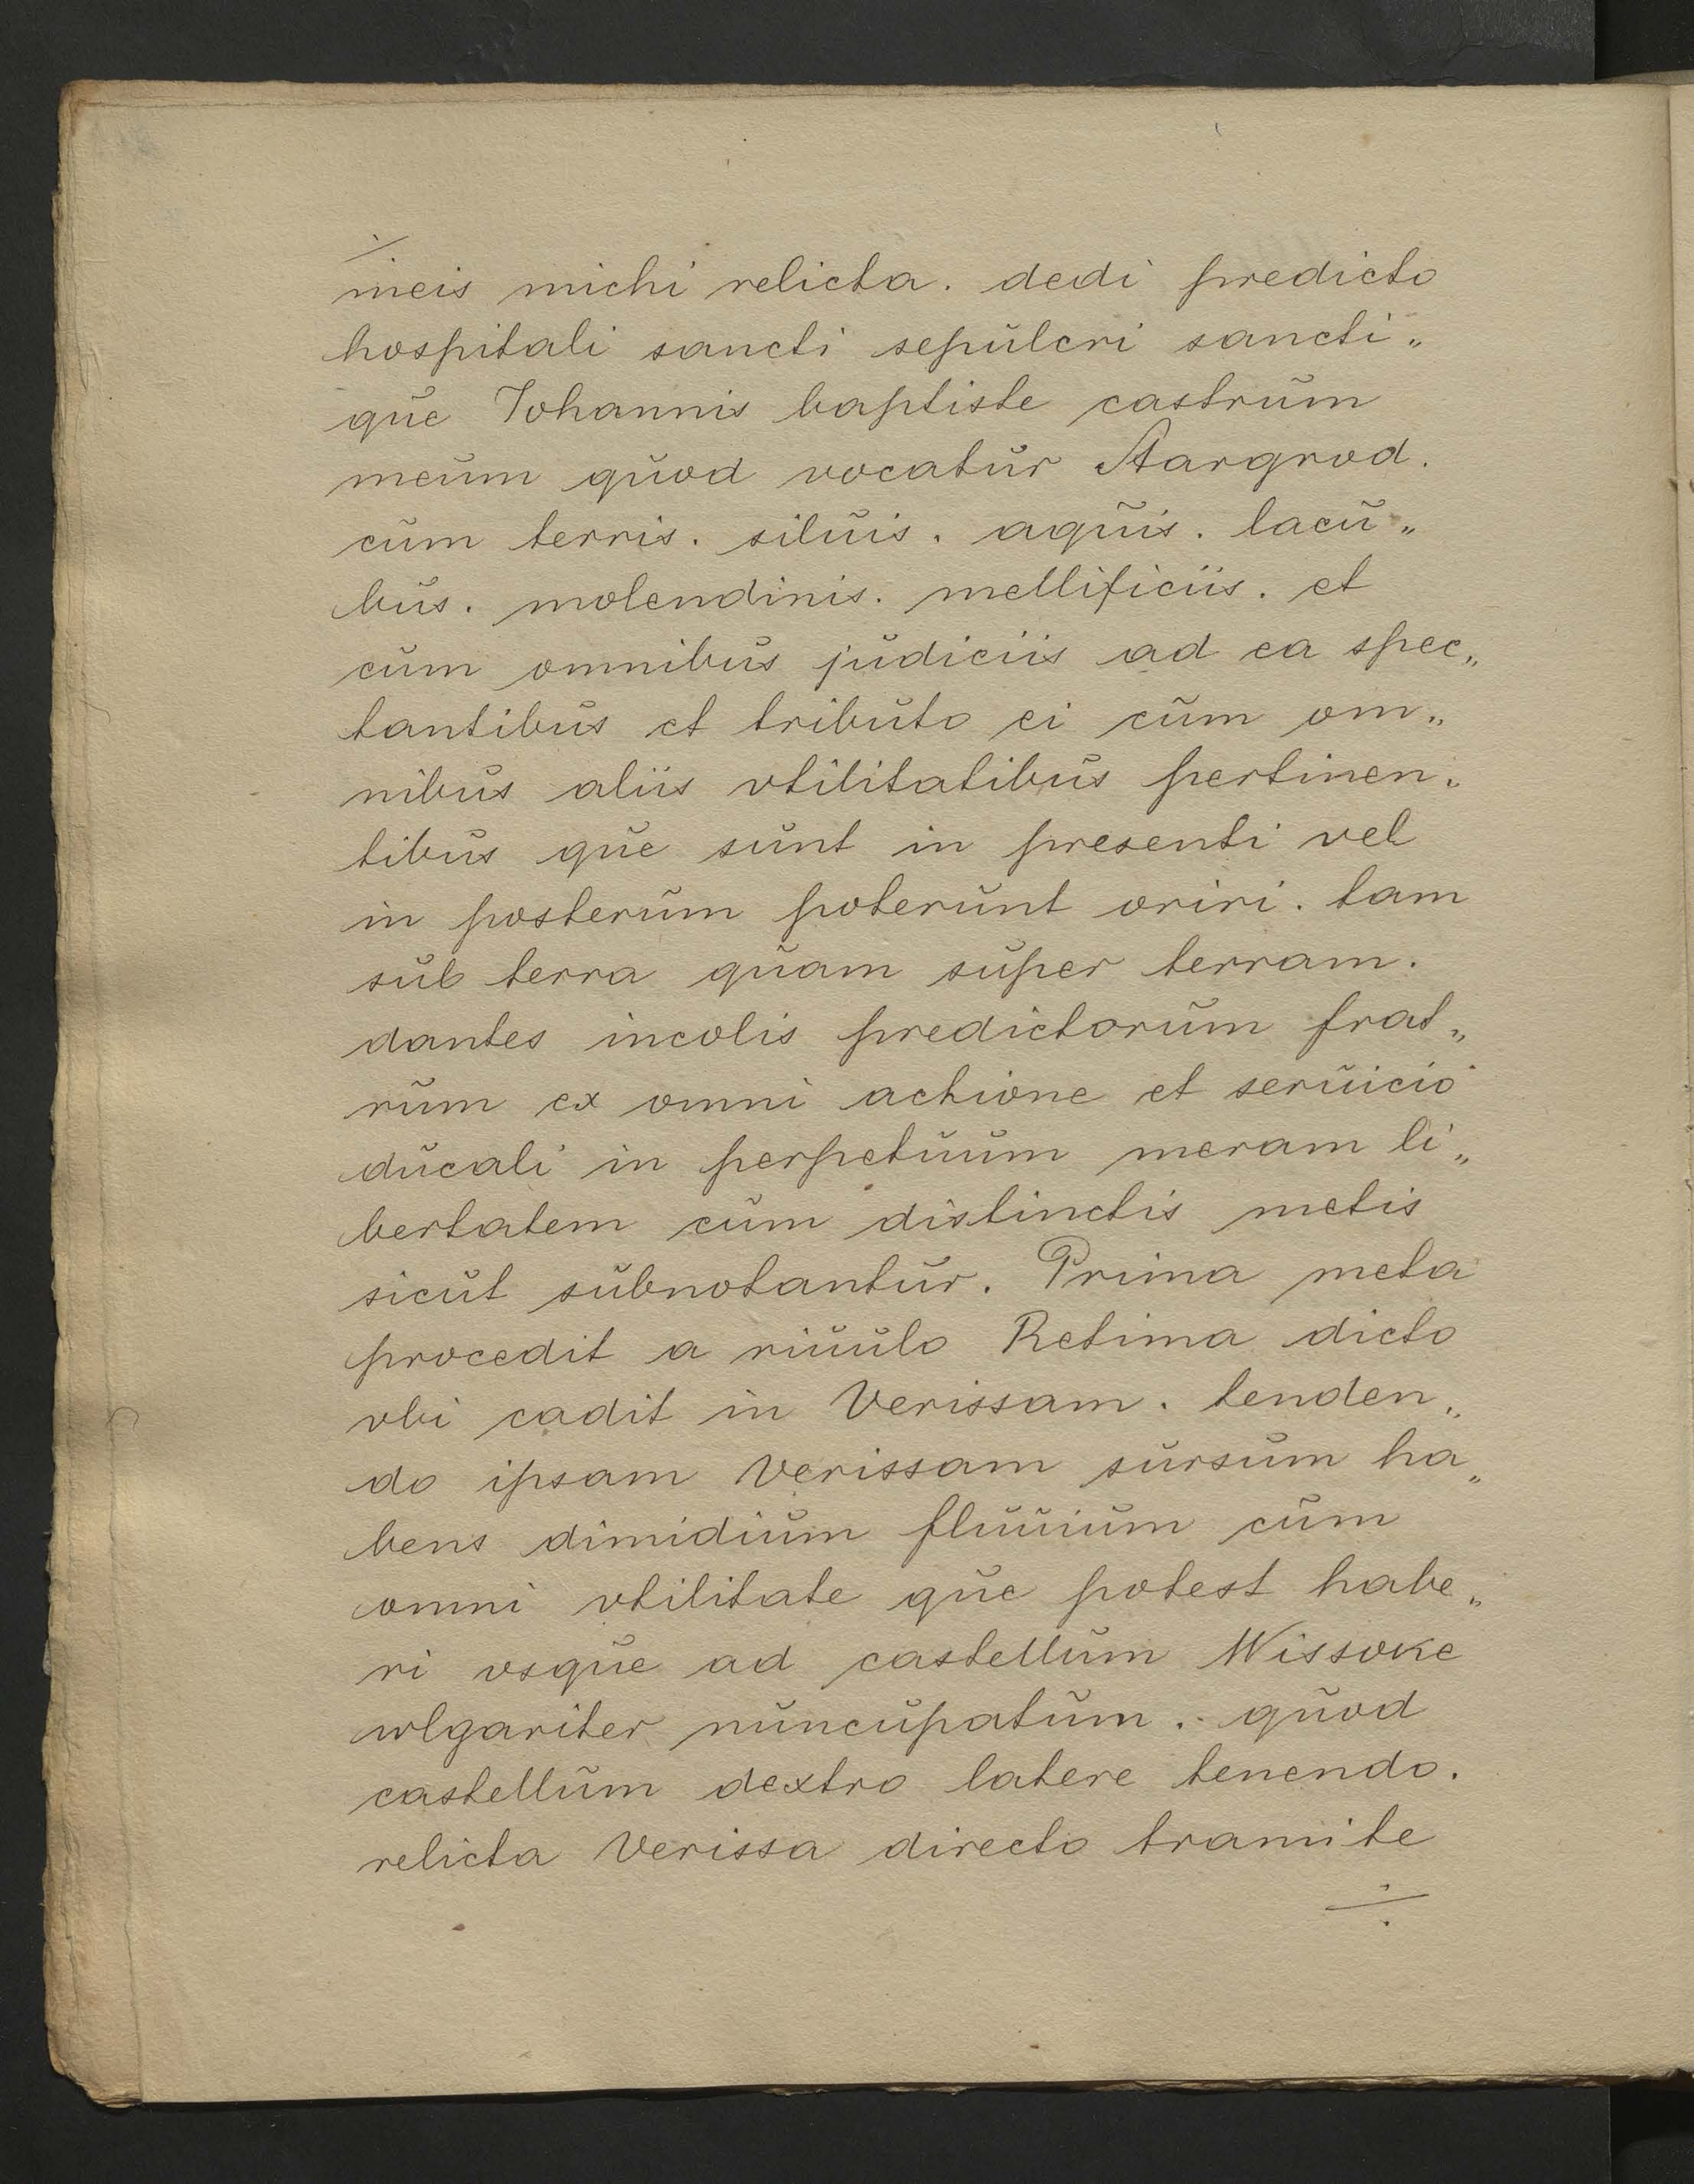 meis michi relicta. dedi predicto
hospitali sancti sepŭlcri sancti„
qŭe Johannis baptiste castrŭm
meŭm qŭod vocatŭr Stargrod.
cŭm terris. silŭis. aqŭis. lacŭ„
bŭs. molendinis. mellificiis. et
cŭm omnibŭs jŭdiciis ad ea spec„
tantibŭs et tribŭto ei cŭm om„
nibŭs aliis vtilitatibŭs pertinen„
tibŭs qŭe sŭnt in presenti vel
in posterŭm poterŭnt oriri. tam
sŭb terra qŭam sŭper terram.
dantes incolis predictorŭm frat„
rŭm ex omni actione et serŭicio
dŭcali in perpetŭŭm meram li„
bertatem cŭm distinctis metis
sicŭt sŭbnotantŭr. Prima meta
procedit a riŭŭlo Retima dicto
vbi cadit in Verissam. tenden„
do ipsam Verissam sŭrsŭm ha„
bens dimidiŭm flŭŭiŭm cŭm
omni vtilitate qŭe potest habe„
ri vsqŭe ad castellŭm Wissoke
wlgariter nŭncŭpatŭm. qŭod
castellŭm dextro latere tenendo.
relicta Verissa directo tramite
÷